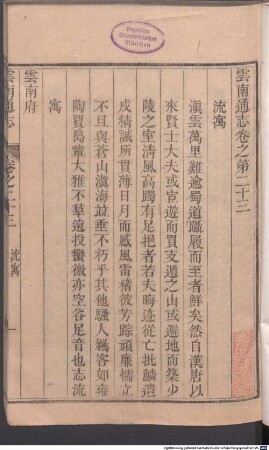 雲南通志卷之第二十三
流寓
滇雲萬里難逾蜀道躡屩而至者鮮矣然自漢唐以
來賢士大夫或宦遊而買支遁之山或避地而築少
陵之室清風高躅有足挹者若夫晦迹從亡批鱗遣
戍精誠所貫薄日月而感風雷稽彼芳踪頑廉懦立
不且與蒼山滇海並垂不朽乎其他騷人羈客如雍
陶賈島輩大雅不羣遠投蠻徼亦空谷足音也志流
寓
雲南府
雲南通志
卷之二十三
流寓
一
Bayerische
Staatsbibliothek
München